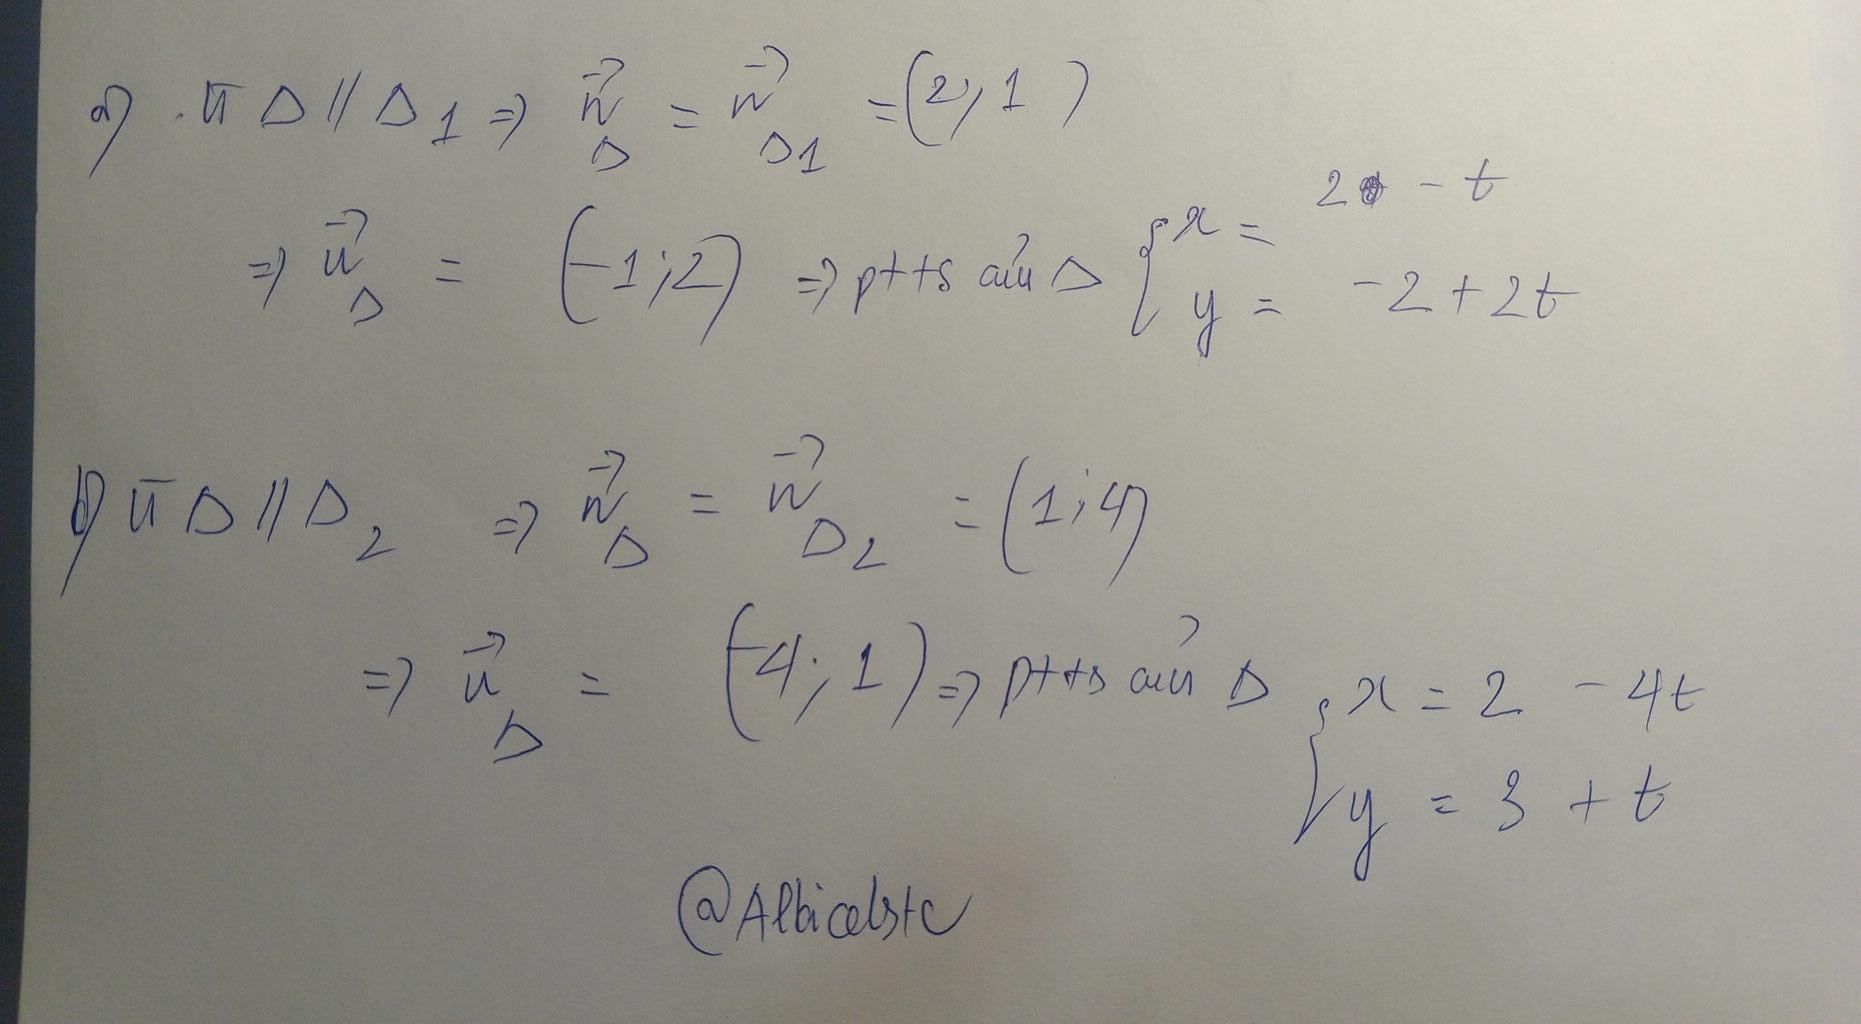 a) . Vì Δ // Δ1 => n⃗Δ = n⃗Δ1 = (2, 1)
=> u⃗Δ = (-1; 2) => ptts của Δ { x = 2 - t
y = -2 + 2t
b) Vì Δ // Δ2 => n⃗Δ = n⃗Δ2 = (1; 4)
=> u⃗Δ = (-4; 1) => ptts của Δ { x = 2 - 4t
y = 3 + t
@Albicelste